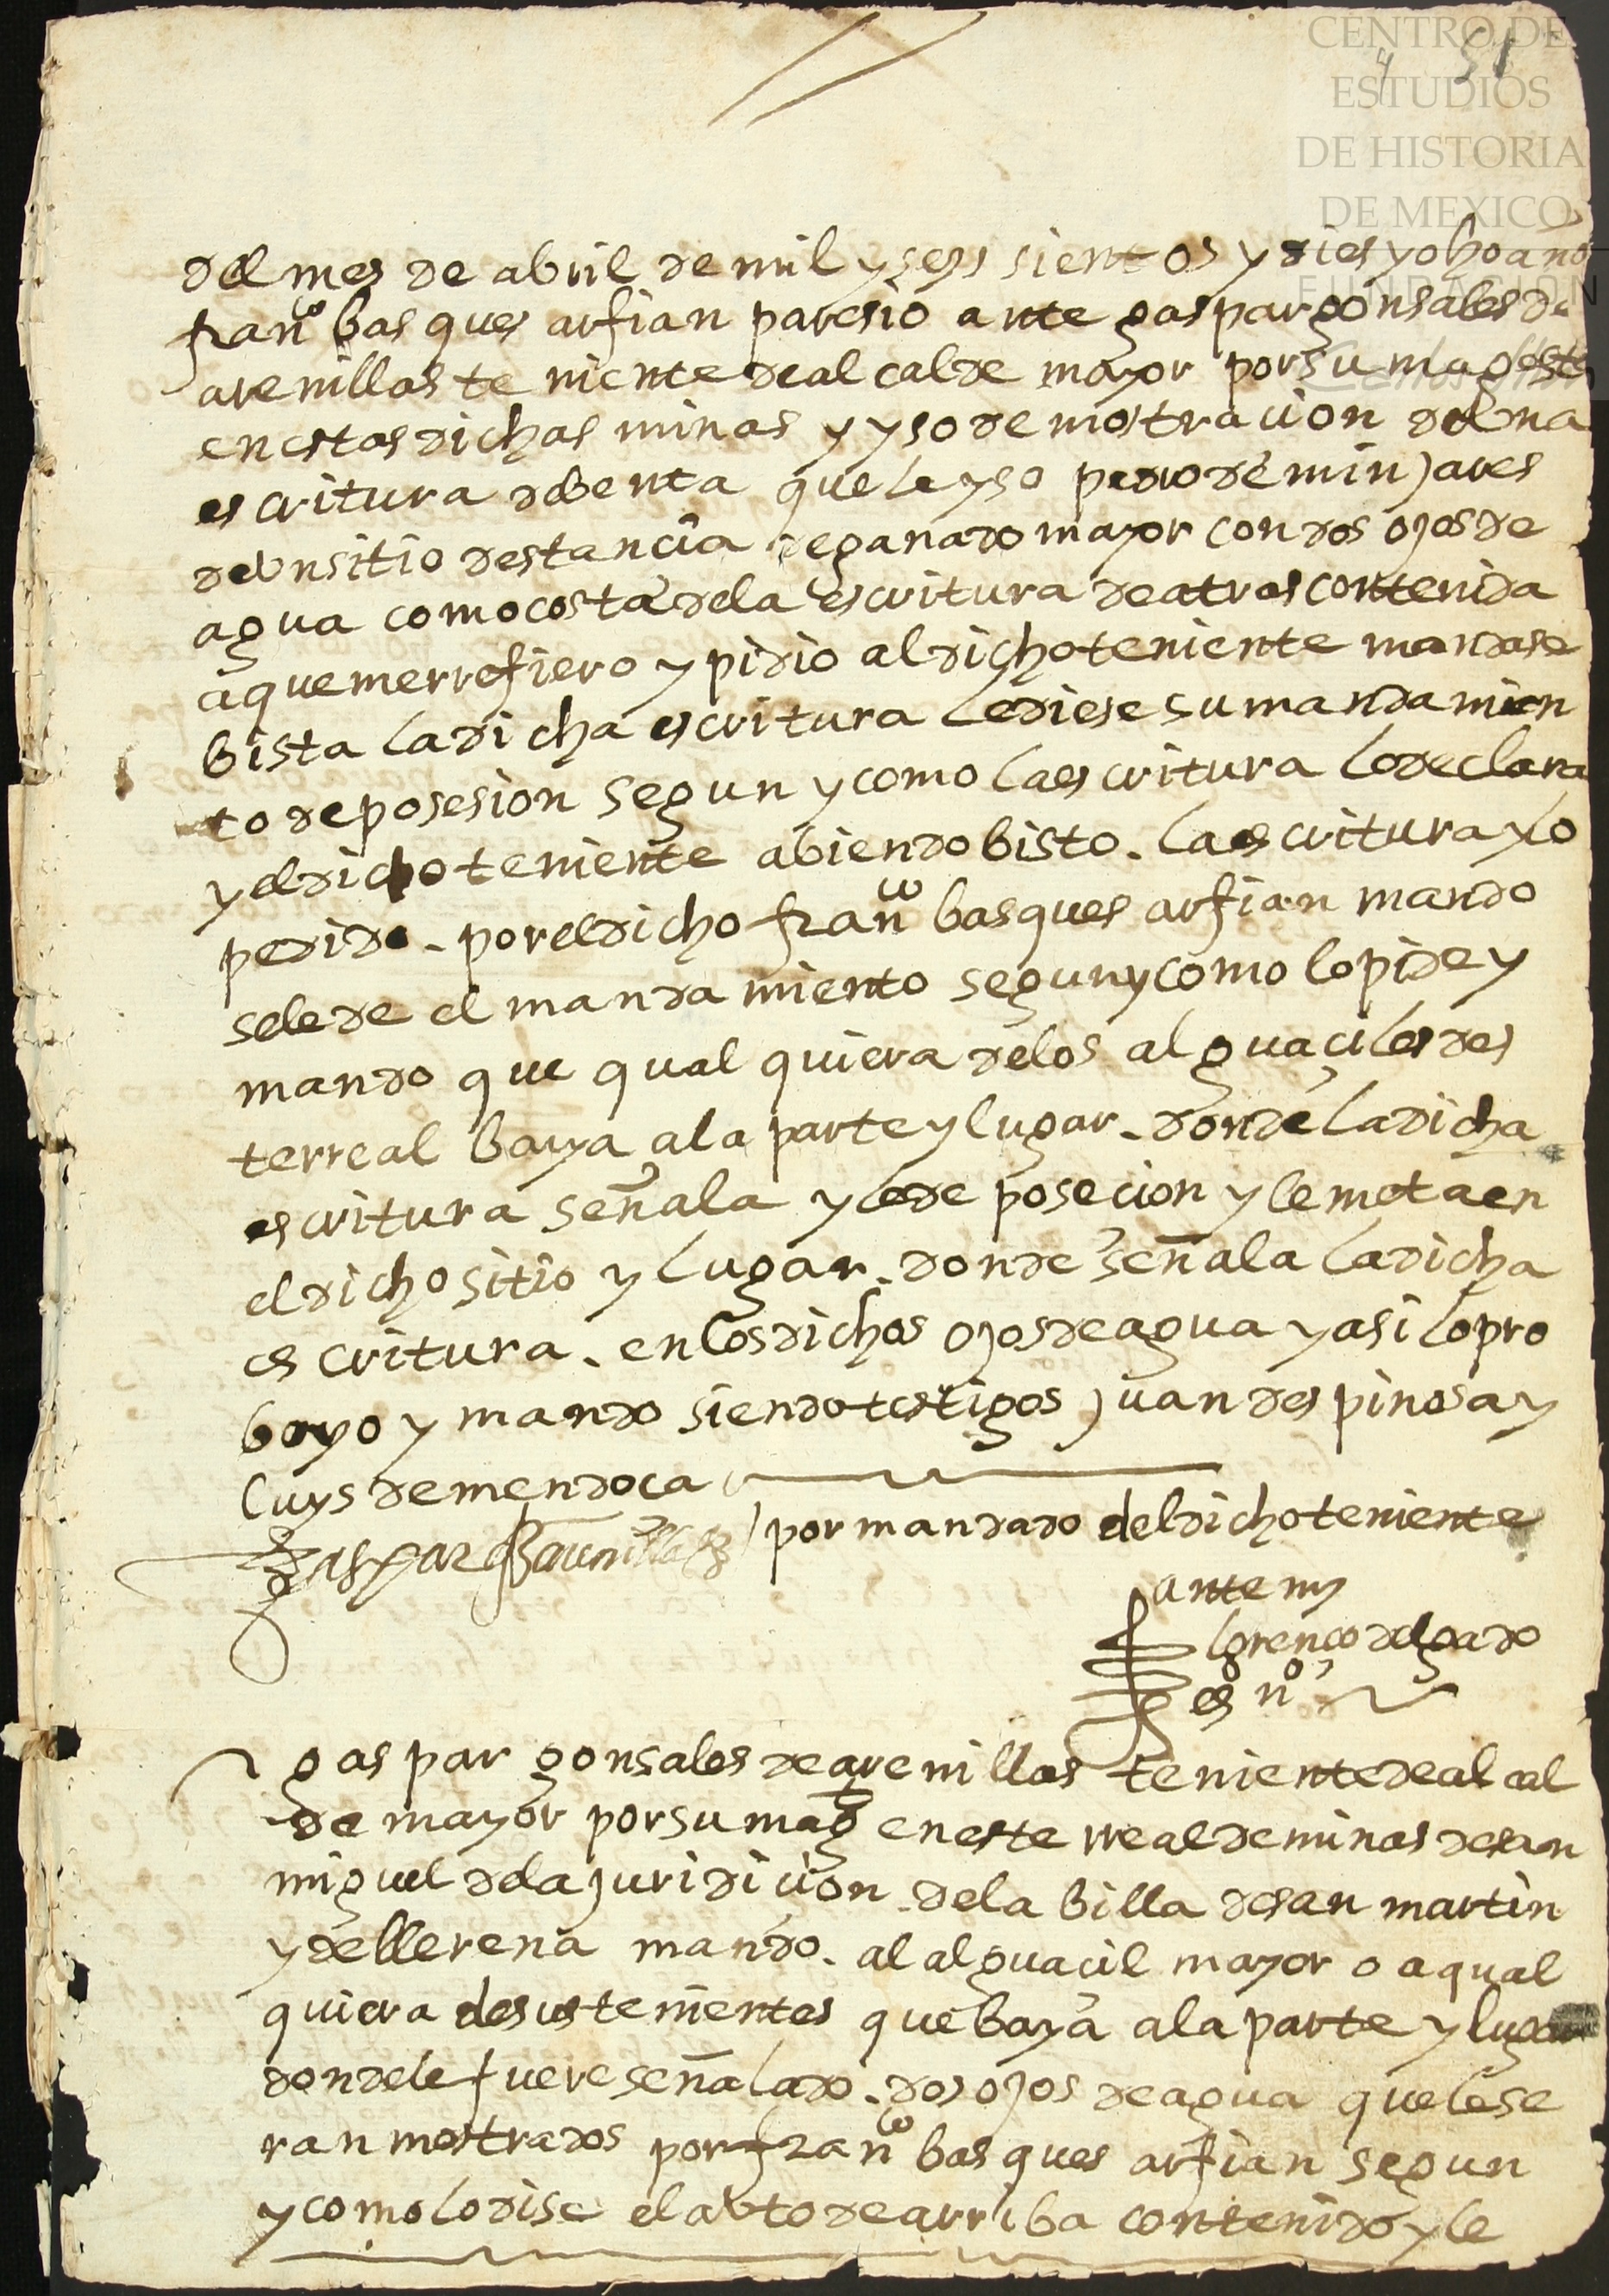 CENTRO DE
ESTUDIOS
DE HISTORIA
DE MEXICO
FUNDACION
4 51
del mes de abril de mil y seys sientos y dies y oho años
franco basques arfian paresio ante gaspar gonsales de
arenillas teniente de alcalde mayor por su magesta
en estas dichas minas y yso demostracion de una
escritura de benta que le yso pedro de minjares
de un sitio destancia de ganado mayor con dos ojos de
agua como costa de la escritura de atras contenida
a que me rrefiero y pidio al dicho teniente mandase
bista la dicha escritura le diese su mandamien
to de posesion segun y como la escritura lo declara
y el dicho teniente abiendo bisto la escritura y lo
pedido por el dicho franco basques arfian mando
se le de el mandamiento segun y como lo pide y
mando que qual quiera de los alguaciles des
te rreal baya a la parte y lugar donde la dicha
escritura señala y le de posecion y le meta en
el dicho sitio y lugar donde señala la dicha
escritura en los dichos ojos de agua y asi lo pro
boyo y mando siendo testigos juan despinosa y
luys de mendoça
por mandado del dicho teniente
gaspar gs arenillas
ante my
lorenço delgado
esno
gaspar gonsales de arenillas teniente de alcal
de mayor por su magt en este rreal de minas de san
miguel de la juridicion de la billa de san martin
y de llerena mando al alguacil mayor o a qual
quiera de sus tenientes que baya a la parte y lugar
donde le fuere señalado dos ojos de agua que le se
ran mostrados por franco basques arfian segun
y como lo dise el abto de arriba contenido y le